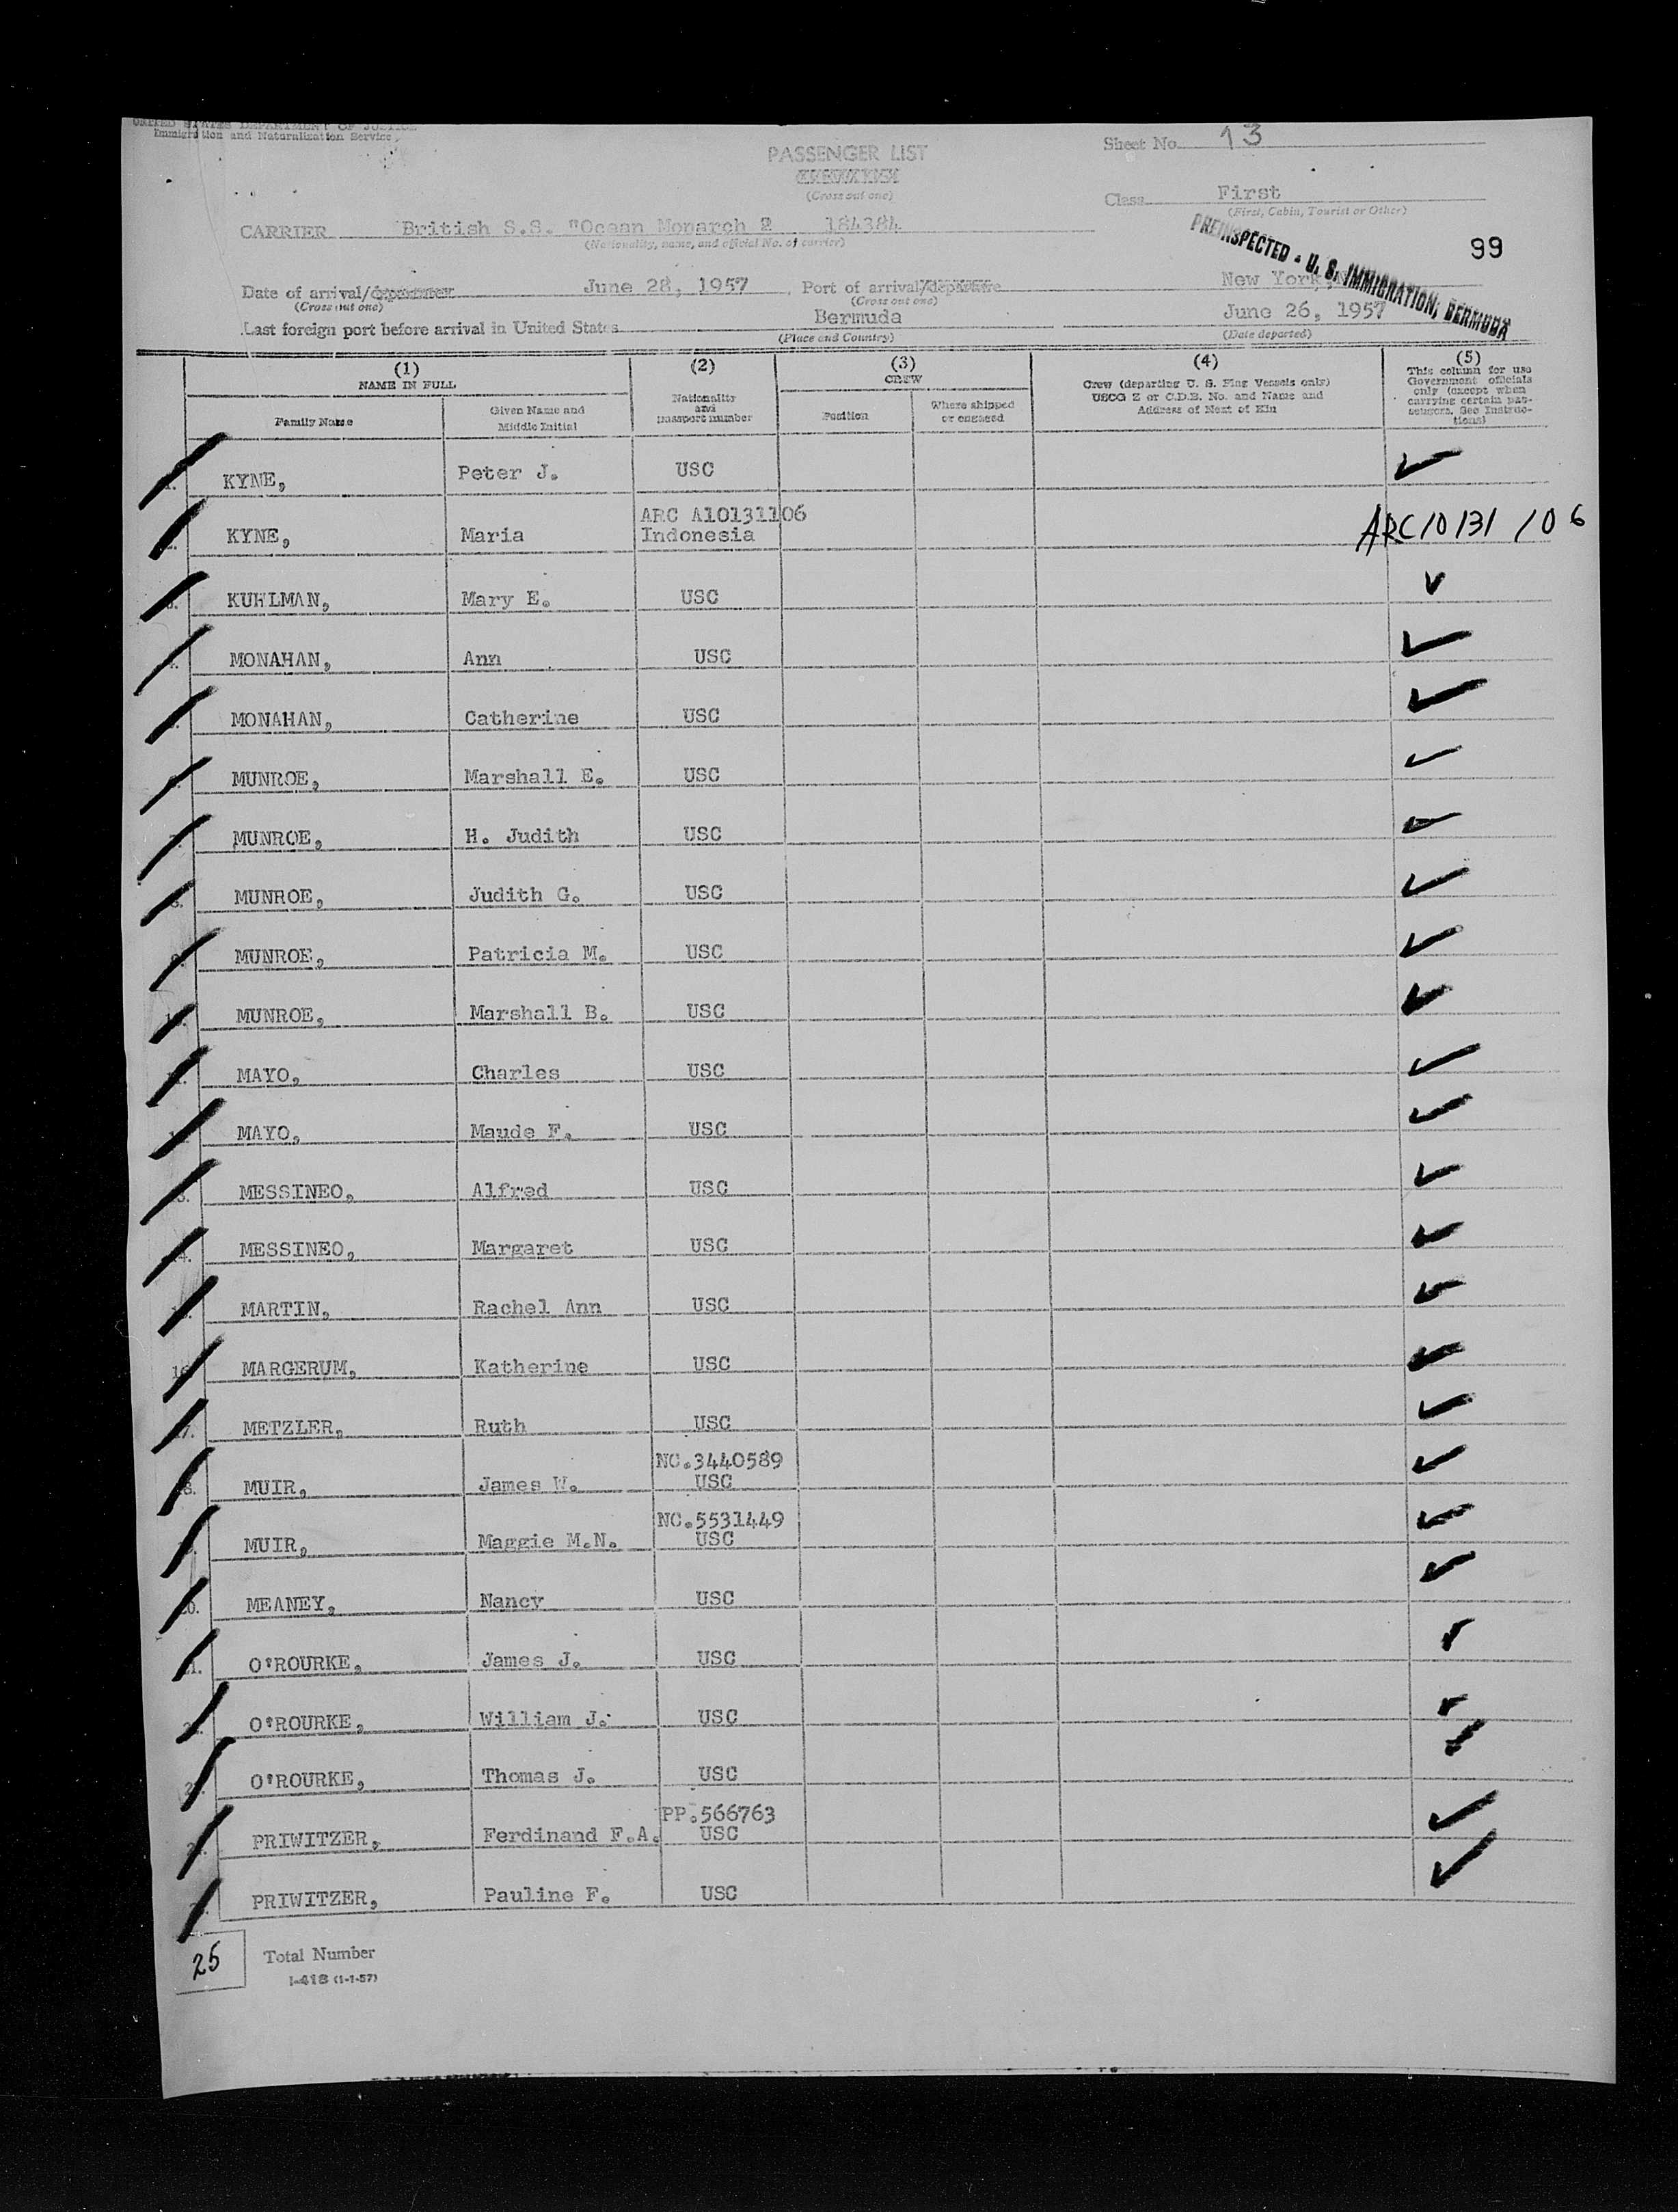 UNITED STATES DEPARTMENT OF JUSTICE
Immigration and Naturalization Service
PASSENGER LIST
Sheet No. 13
(Cross out one)
Class First
(First, Cabin, Tourist or Other)
CARRIER British S.S. "Ocean Monarch 2 184384
(Nationality, name, and official No. of carrier)
PREINSPECTED - U. S. IMMIGRATION, BERMUDA
99
Date of arrival/departure June 28, 1957 Port of arrival/departure New York
(Cross out one) (Cross out one)
Last foreign port before arrival in United States Bermuda June 26, 1957
(Place and Country) (Date departed)
(1) (2) (3) (4) (5)
NAME IN FULL
Family Name
Given Name and Middle Initial
Nationality and passport number
CREW
Position
Where shipped or engaged
Crew (departing U. S. Flag Vessels only)
USCG Z or C.D.B. No. and Name and
Address of Next of Kin
This column for use
Government officials
only (except when
carrying certain pas-
sengers. See Instruc-
tions)
1. KYNE, Peter J. USC
ARC A10131106
KYNE, Maria Indonesia ARC10131106
KUHLMAN, Mary E. USC
MONAHAN, Ann USC
MONAHAN, Catherine USC
MUNROE, Marshall E. USC
MUNROE, H. Judith USC
8. MUNROE, Judith G. USC
MUNROE, Patricia M. USC
MUNROE, Marshall B. USC
MAYO, Charles USC
MAYO, Maude F. USC
MESSINEO, Alfred USC
MESSINEO, Margaret USC
MARTIN, Rachel Ann USC
16 MARGERUM, Katherine USC
7. METZLER, Ruth USC
NC.3440589
8. MUIR, James W. USC
NC.5531449
MUIR, Maggie M.N. USC
0. MEANEY, Nancy USC
1. O'ROURKE, James J. USC
O'ROURKE, William J. USC
O'ROURKE, Thomas J. USC
PP.566763
PRIWITZER, Ferdinand F.A. USC
PRIWITZER, Pauline F. USC
25 Total Number
I-418 (1-1-57)